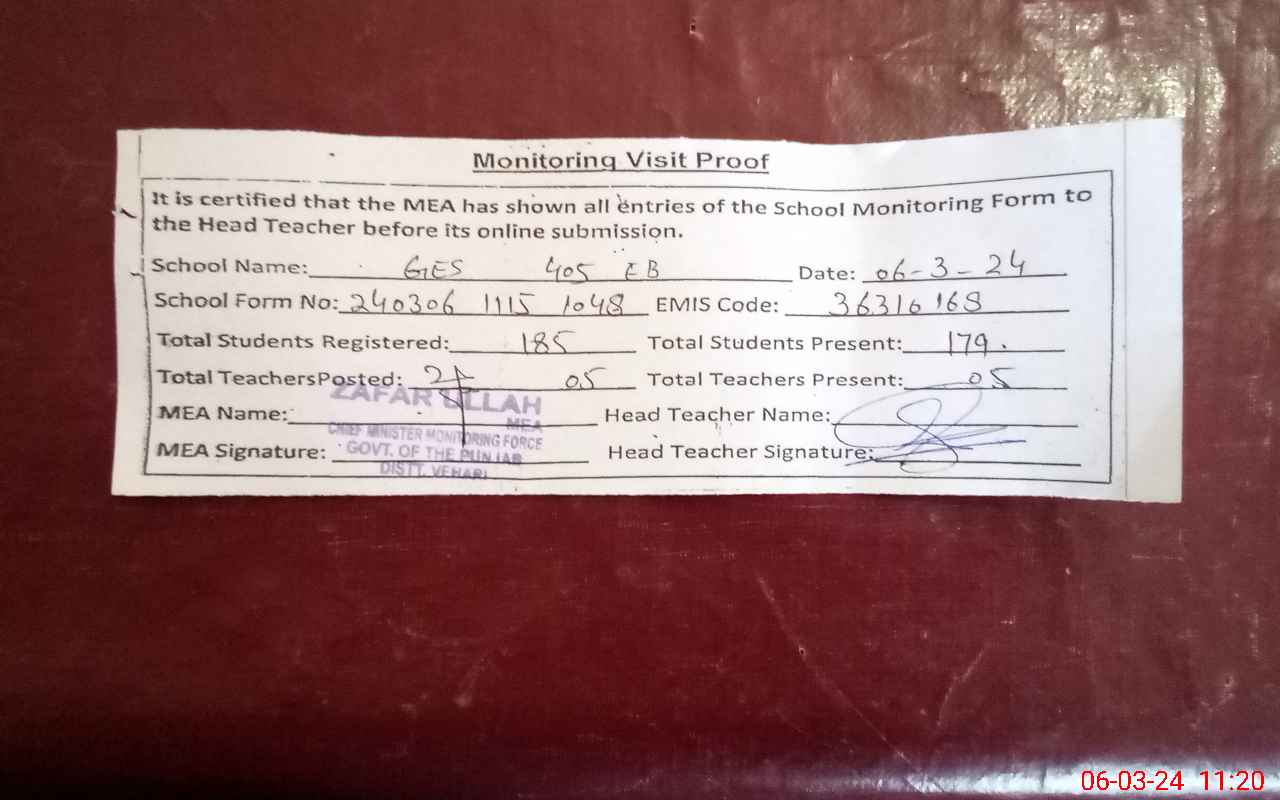 Monitoring Visit Proof
It is certified that the MEA has shown all entries of the School Monitoring Form to
the Head Teacher before its online submission.
School Name: GES 405 EB Date: 06-3-24
School Form No: 240306 1115 1048 EMIS Code: 36310168
Total Students Registered: 185 Total Students Present: 179.
Total TeachersPosted: 05 Total Teachers Present: 05
ZAFAR ULLAH
MEA Name: MEA Head Teacher Name:
CHIEF MINISTER MONITORING FORCE
MEA Signature: GOVT. OF THE PUNJAB Head Teacher Signature:
DISTT. VEHARI
06-03-24 11:20